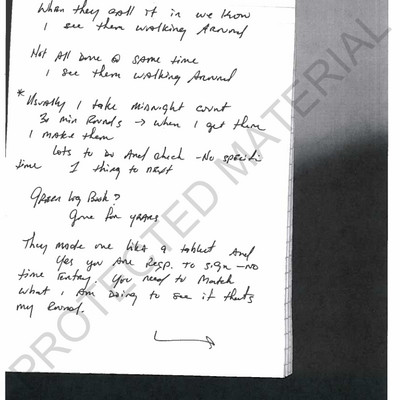 When they call it in we know
I see them walking around
Not all done @ same time
I see them walking around
*Usually I take midnight count
30 min Rounds → when I get there
I make them
Lots to do and check - No specific
time 1 thing to next
Green Log Book?
Gone for years
They made one like a tablet and
Yes you are Resp. to sign - no
time Entry. You need to Match
what I am doing to see if that's
my Round.
PROTECTED MATERIAL